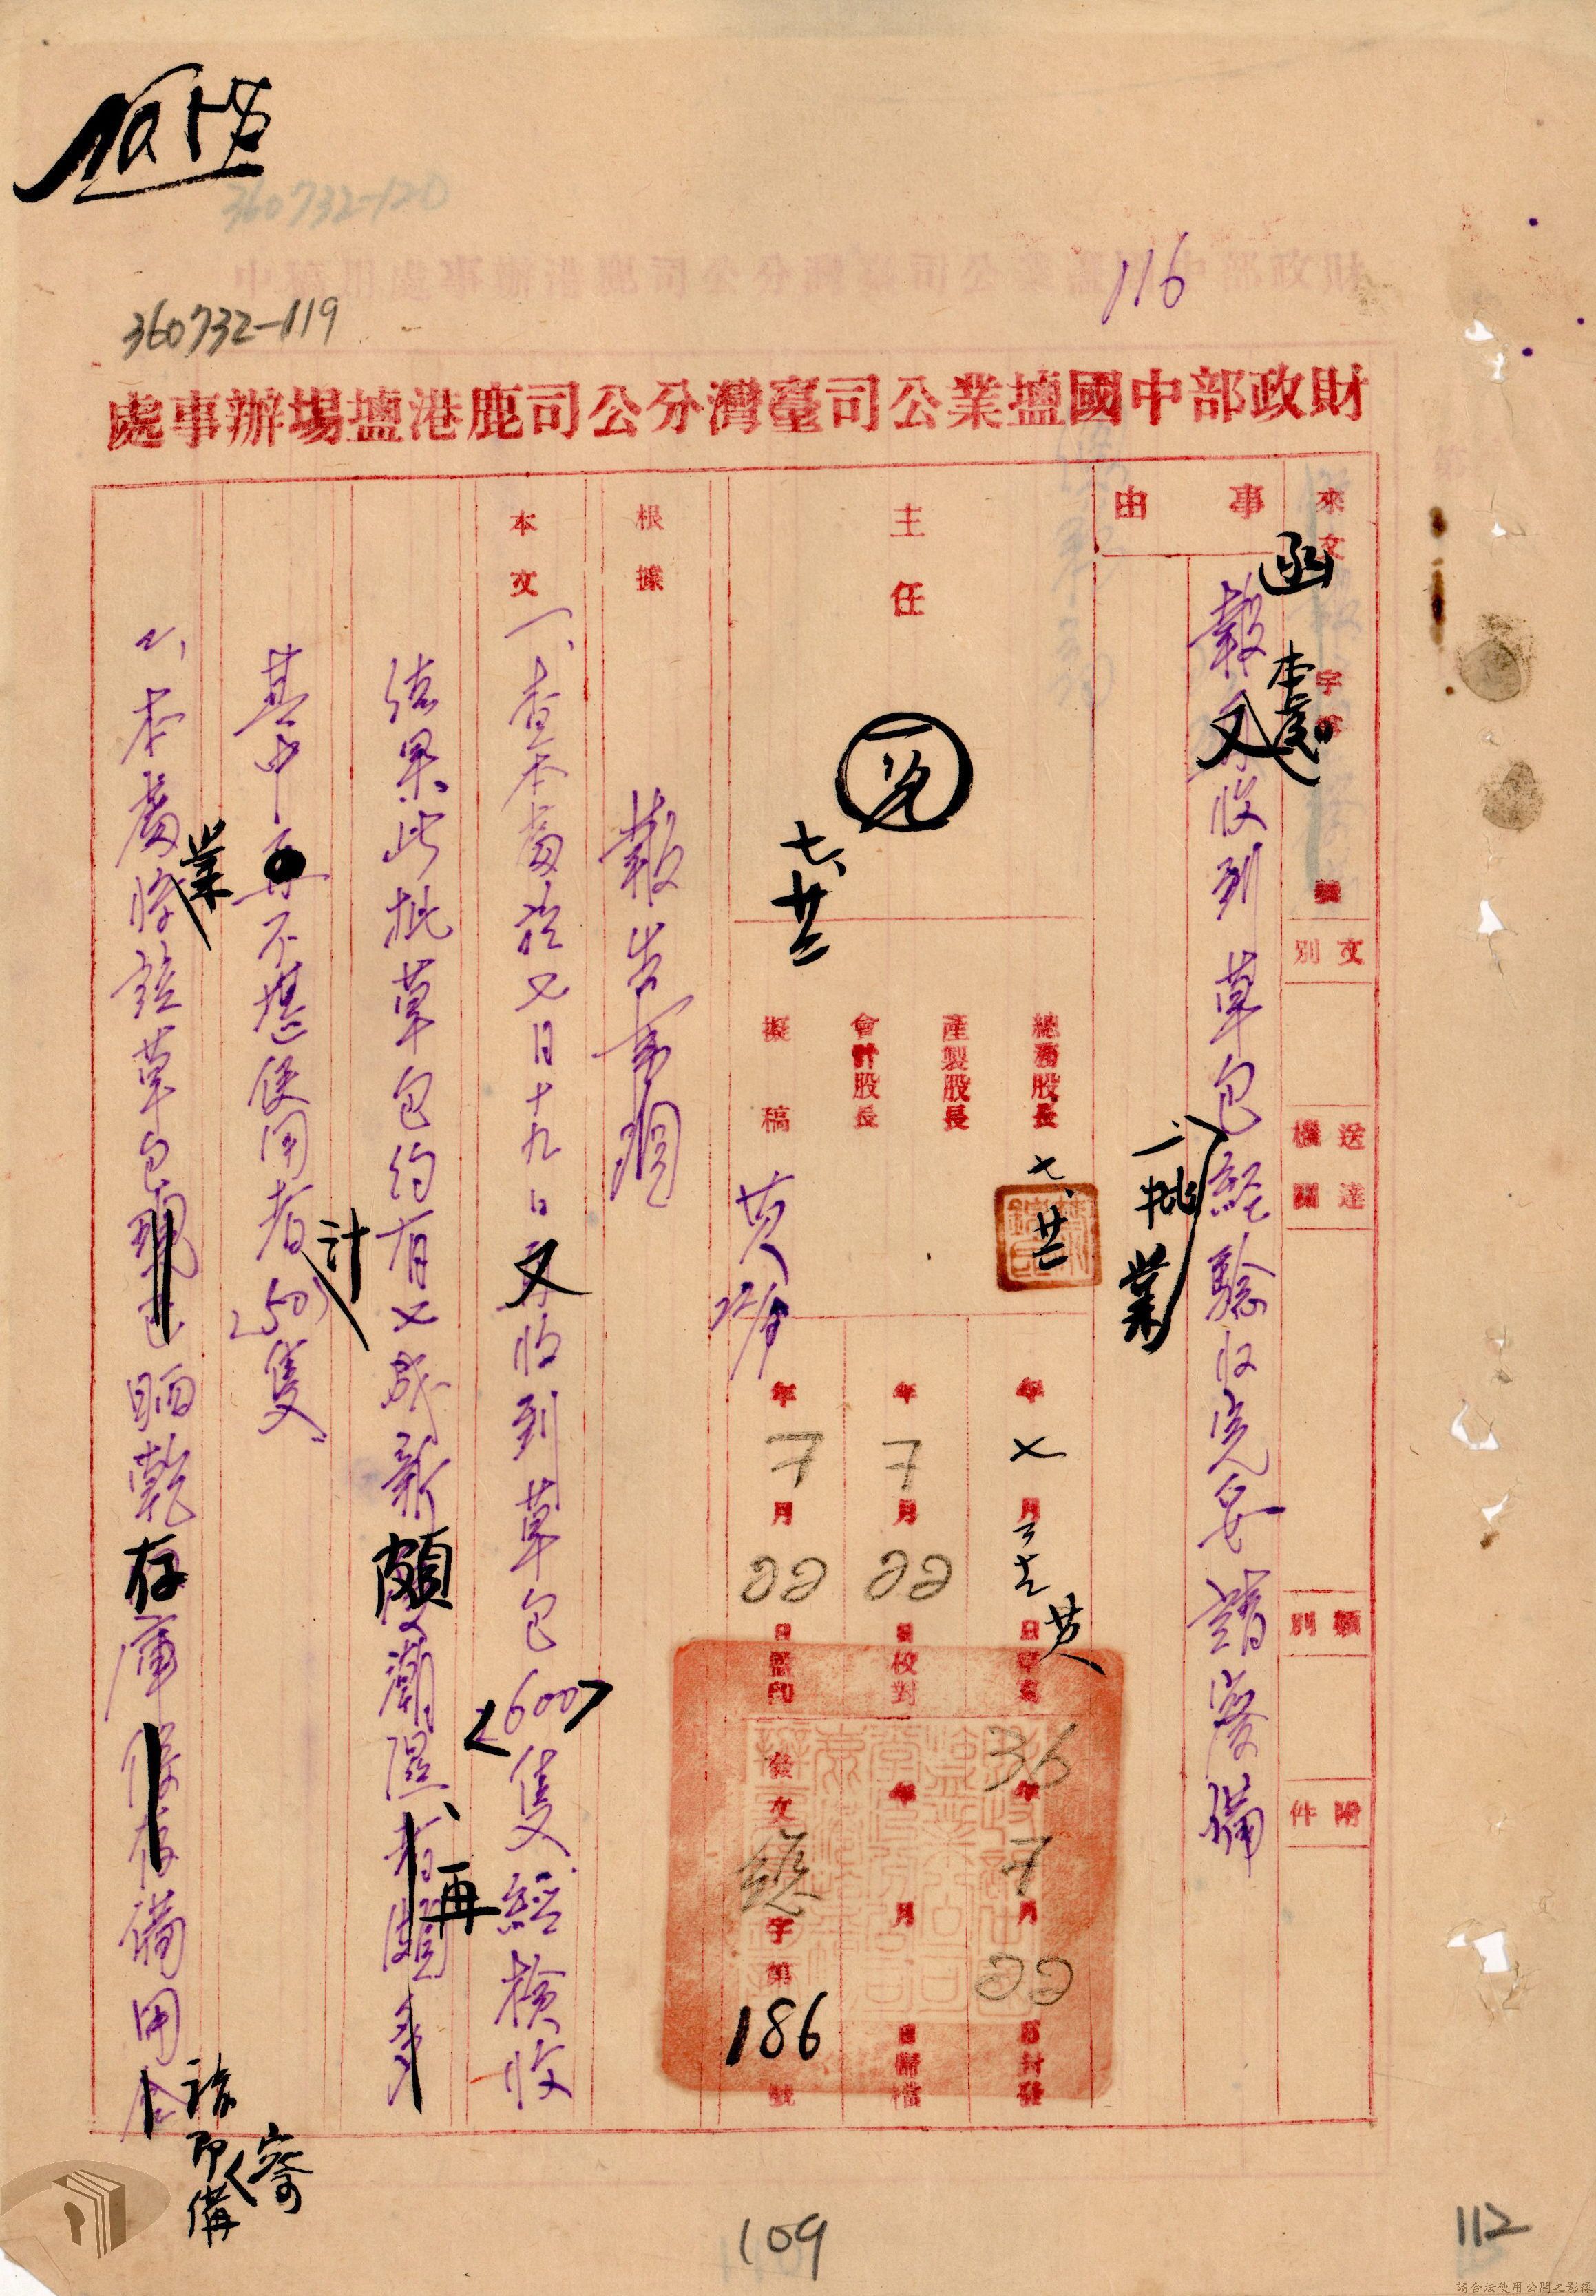 360732-120
116
360732-119
財政部中國塩業公司臺灣分公司鹿港塩場辦事處
來文 字第 號
文別
送達機關
類別
附件
事由
函
本處
報又收到草包經驗收完畢請察備
一批業
主任
七、廿二
總務股長
七、廿二
產製股長
會計股長
擬稿
黃
年 七 月
年 7 月 22 日 校對
年 7 月 22 日 監印
36 年 7 月 22 日 封發
年 月 日 歸檔
發文 總 字第 186 號
根據
報告事項
本文
一、查本處於七月十九日又收到草包<600>隻經檢收
結果此批草包約有七成新頗潮濕、
再
其中不堪使用者計250隻
二、本處業將該草包晒乾存庫備用
請
即
備
察
109
112
請合法使用公開之影像